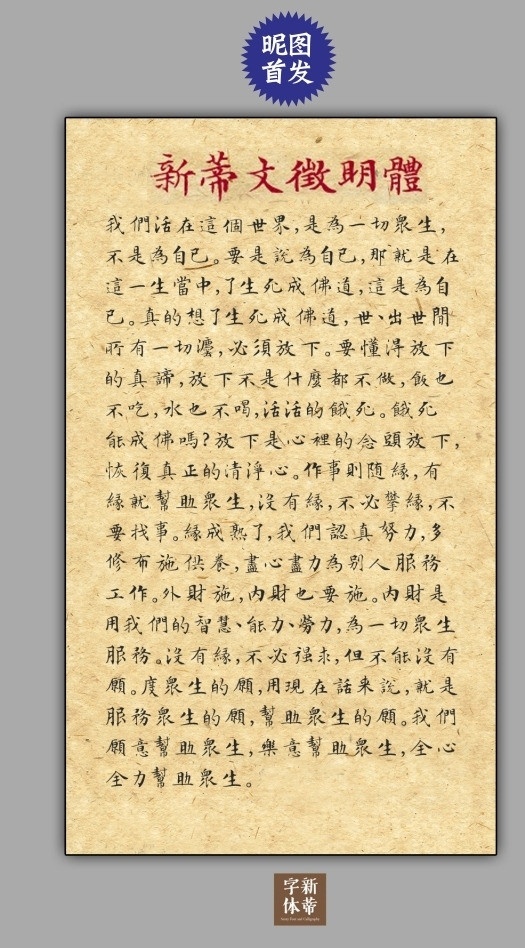 昵图
首发
新蒂文徵明體
我們活在這個世界,是為一切衆生,
不是為自己。要是說為自己,那就是在
這一生當中,了生死成佛道,這是為自
己。真的想了生死成佛道,世、出世間
所有一切灋,必須放下。要懂得放下
的真諦,放下不是什麼都不做,飯也
不吃,水也不喝,活活的餓死。餓死
能成佛嗎?放下是心裡的念頭放下,
恢復真正的清淨心。作事則随緣,有
緣就幫助衆生,沒有緣,不必攀緣,不
要找事。緣成熟了,我們認真努力,多
修布施供養,盡心盡力為别人服務
工作。外財施,内財也要施。内財是
用我們的智慧、能力、勞力,為一切衆生
服務。沒有緣,不必强求,但不能沒有
願。度衆生的願,用現在話来說,就是
服務衆生的願,幫助衆生的願。我們
願意幫助衆生,樂意幫助衆生,全心
全力幫助衆生。
字新
体蒂